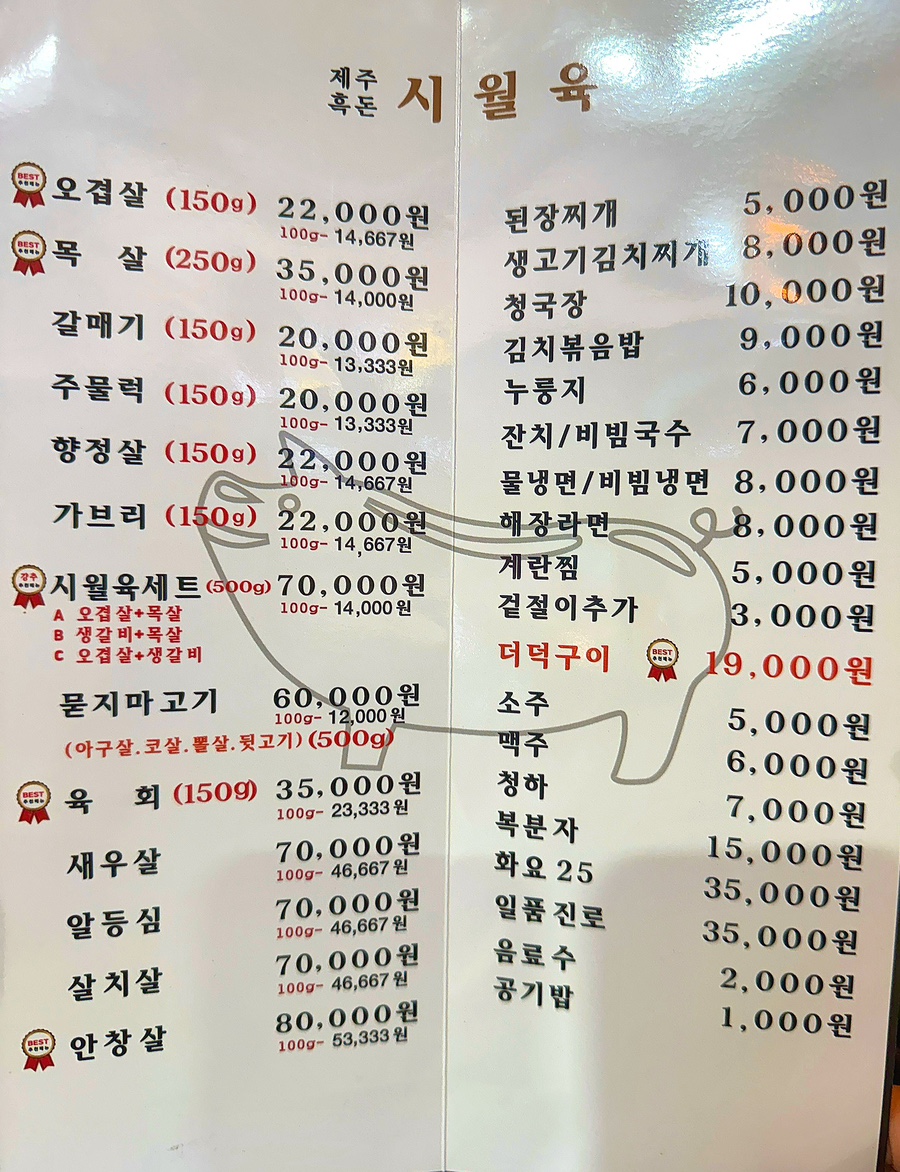 제주
흑돈 시월육
BEST 추천메뉴 오겹살 (150g) 22,000원
100g- 14,667원
BEST 추천메뉴 목 살 (250g) 35,000원
100g- 14,000원
갈매기 (150g) 20,000원
100g- 13,333원
주물럭 (150g) 20,000원
100g- 13,333원
향정살 (150g) 22,000원
100g- 14,667원
가브리 (150g) 22,000원
100g- 14,667원
강추 추천메뉴 시월육세트 (500g) 70,000원
100g- 14,000원
A 오겹살+목살
B 생갈비+목살
C 오겹살+생갈비
묻지마고기 60,000원
100g- 12,000원
(아구살.코살.뽈살.뒷고기) (500g)
BEST 추천메뉴 육 회 (150g) 35,000원
100g- 23,333원
새우살 70,000원
100g- 46,667원
알등심 70,000원
100g- 46,667원
살치살 70,000원
100g- 46,667원
BEST 추천메뉴 안창살 80,000원
100g- 53,333원
된장찌개 5,000원
생고기김치찌개 8,000원
청국장 10,000원
김치볶음밥 9,000원
누룽지 6,000원
잔치/비빔국수 7,000원
물냉면/비빔냉면 8,000원
해장라면 8,000원
계란찜 5,000원
겉절이추가 3,000원
더덕구이 BEST 추천메뉴 19,000원
소주 5,000원
맥주 6,000원
청하 7,000원
복분자 15,000원
화요25 35,000원
일품진로 35,000원
음료수 2,000원
공기밥 1,000원